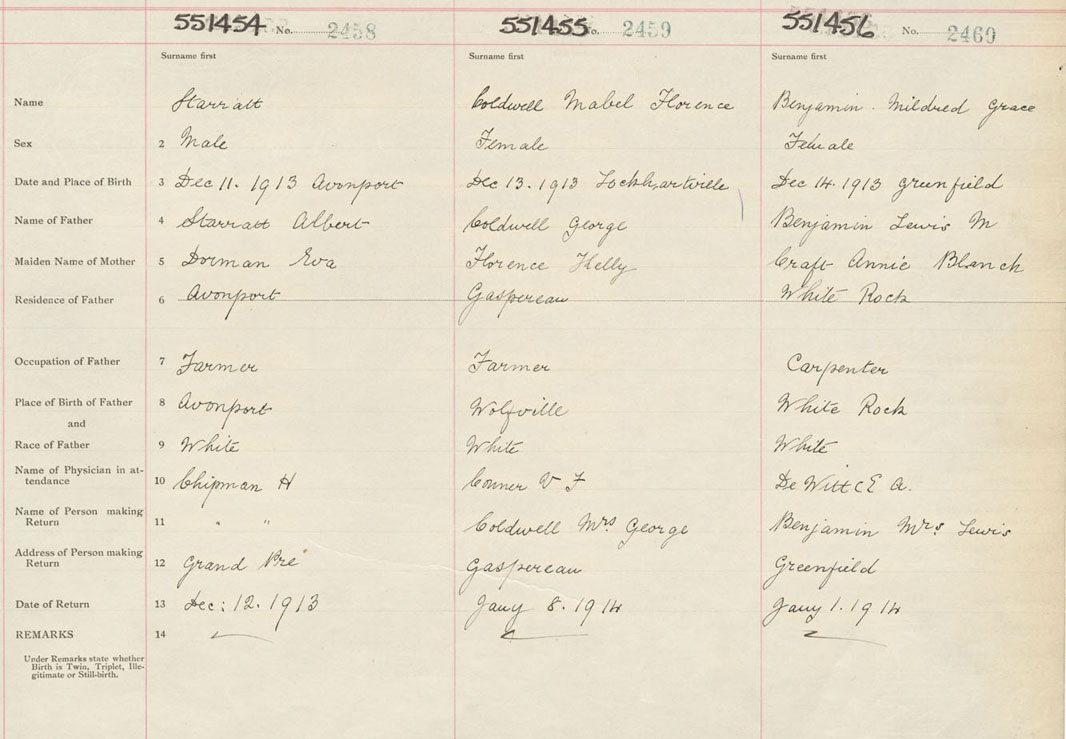 551454 No. 2458 551455 No. 2459 551456 No. 2460
Surname first Surname first Surname first
Name Starratt Coldwell Mabel Florence Benjamin. Mildred Grace
Sex 2 Male Female Female
Date and Place of Birth 3 Dec 11. 1913 Avonport Dec 13. 1913 Lockhartville Dec 14. 1913 Greenfield
Name of Father 4 Starratt Albert Coldwell George Benjamin Lewis M
Maiden Name of Mother 5 Dorman Eva Florence Kelly Craft Annie Blanch
Residence of Father 6 Avonport Gaspereau White Rock
Occupation of Father 7 Farmer Farmer Carpenter
Place of Birth of Father 8 Avonport Wolfville White Rock
and
Race of Father 9 White White White
Name of Physician in at-
tendance 10 Chipman H Conner V F DeWitt C E A.
Name of Person making
Return 11 " " Coldwell Mrs George Benjamin Mrs. Lewis
Address of Person making
Return 12 Grand Pre Gaspereau Greenfield
Date of Return 13 Dec: 12. 1913 Jany 8. 1914 Jany 1. 1914
REMARKS 14
Under Remarks state whether
Birth is Twin, Triplet, Ille-
gitimate or Still-birth.